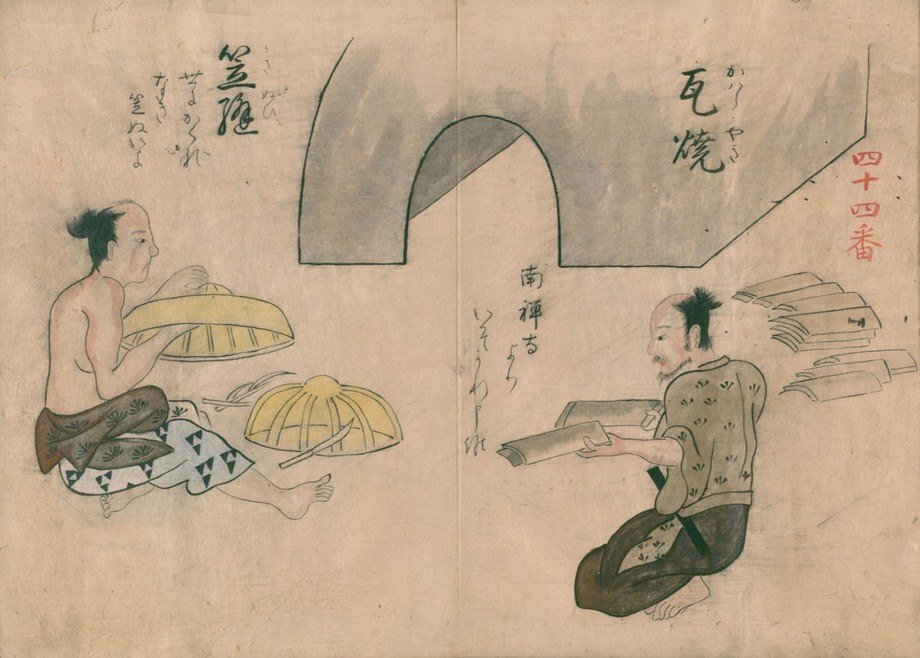 四十四番
かはらやき
瓦焼
南禅寺より
いそかれ申候
かさぬひ
笠縫
世にかくれ
なき
笠ぬいよ